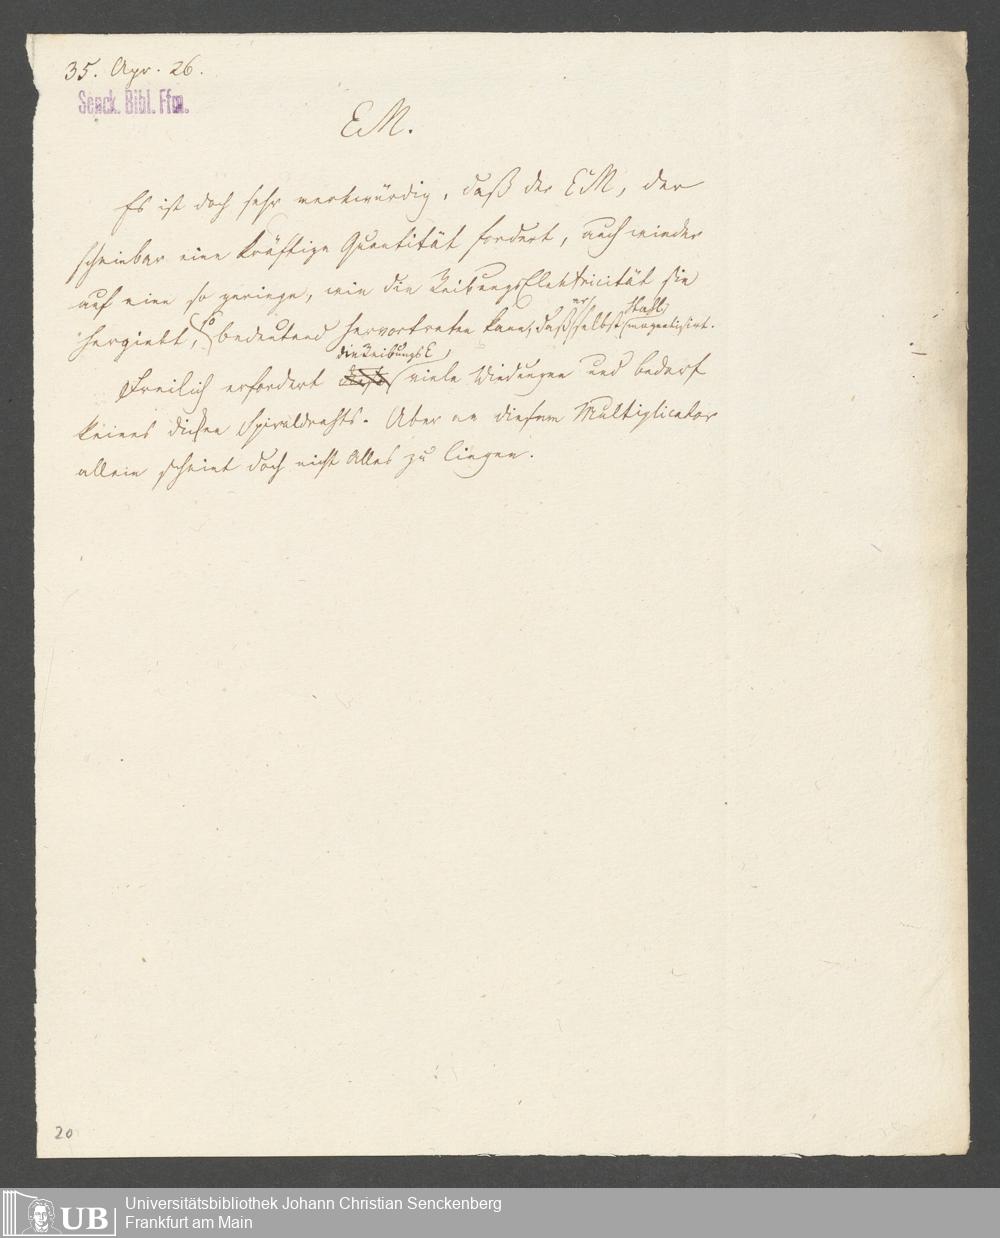 35. Apr. 26.
Senck. Bibl. Ffm.
EM.
Es ist doch sehr merkwürdig, daß der EM, der
scheinbar eine kräftige Quantität fordert, auch wieder
auf eine so geringe, wie die ReibungsElektricität sie
hergiebt, so bedeutend hervortreten kann, daß er selbst Stahl magnetisirt.
Freilich erfordert die ReibungsE viele Windungen und bedarf
keines dicken Spiraldrahts. Aber an diesem Multiplicator
allein scheint doch nicht Alles zu liegen.
20
UB
Universitätsbibliothek Johann Christian Senckenberg
Frankfurt am Main